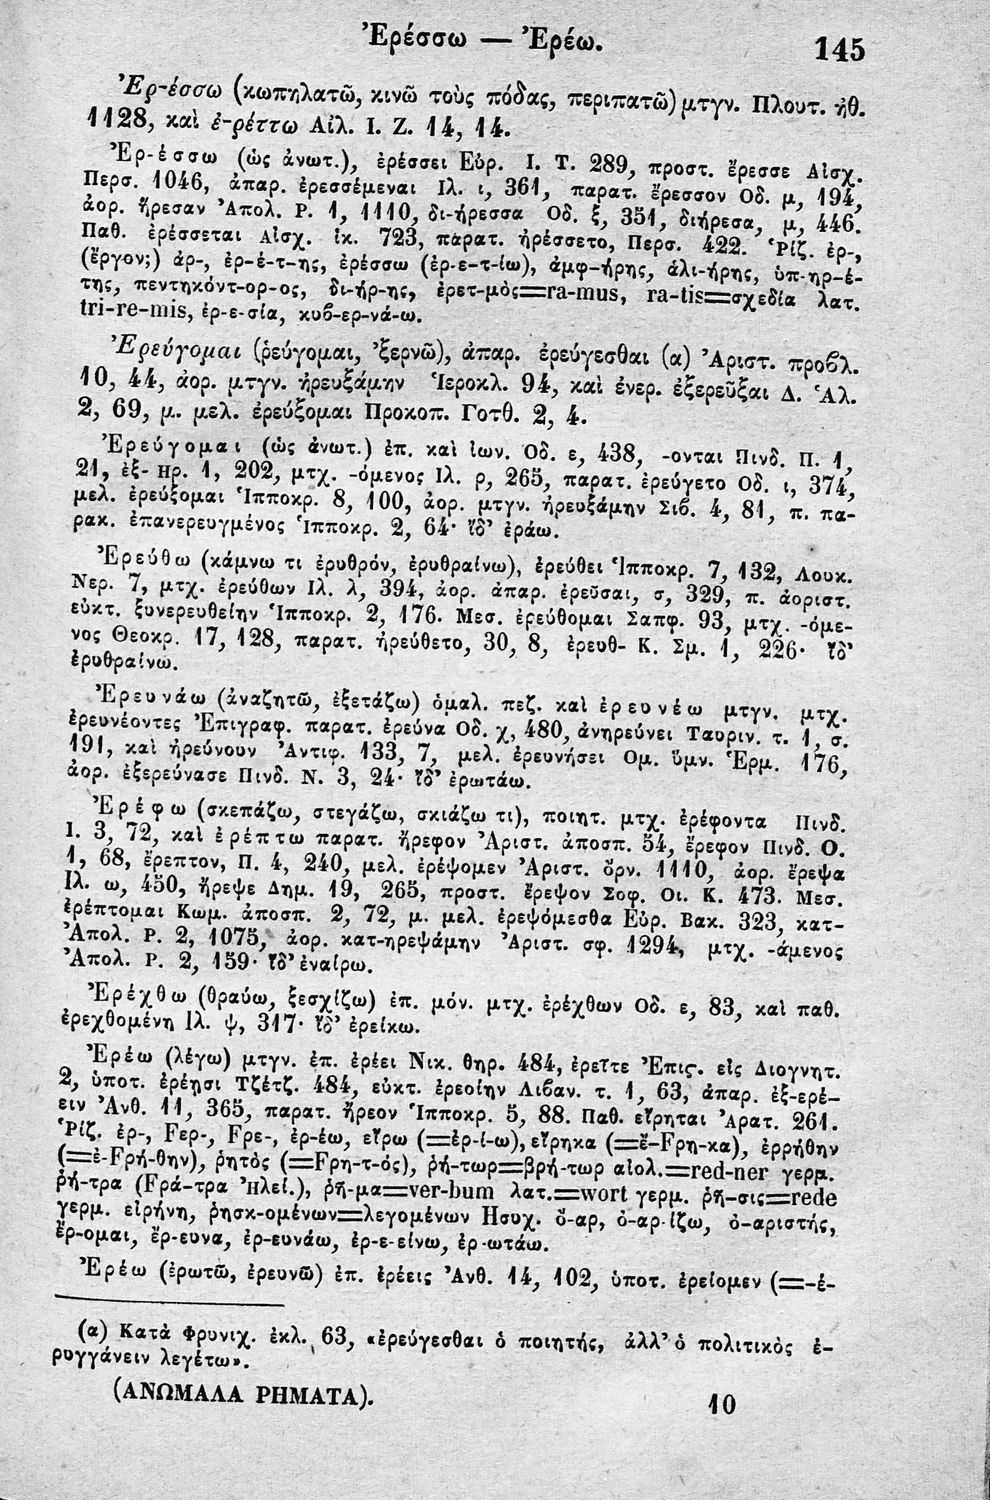 Ἐρέσσω — Ἐρέω.
145
Ἐρ-έσσω (κωπηλατῶ, κινῶ τοὺς πόδας, περιπατῶ) μτγν. Πλουτ. ἠθ.
1128, καὶ ἐ-ρέττω Αἰλ. Ι. Ζ. 14, 14.
Ἐρ-έσσω (ὡς ἀνωτ.), ἐρέσσει Εὐρ. Ι. Τ. 289, προστ. ἔρεσσε Αἰσχ.
Περσ. 1046, ἀπαρ. ἐρεσσέμεναι Ιλ. ι, 361, παρατ. ἔρεσσον Οδ. μ, 194,
ἀορ. ἤρεσαν Ἀπολ. Ρ. 1, 1110, δι-ήρεσσα Οδ. ξ, 351, διήρεσα, μ, 446.
Παθ. ἐρέσσεται Αἰσχ. ἱκ. 723, παρατ. ἠρέσσετο, Περσ. 422. Ῥίζ. ἐρ-,
(ἔργον;) ἀρ-, ἐρ-έ-τ-ης, ἐρέσσω (ἐρ-ε-τ-ίω), ἀμφ-ήρης, ἁλι-ήρης, ὑπ-ηρ-έ-
της, πεντηκόντ-ορ-ος, δι-ήρ-ης, ἐρετ-μὸς=ra-mus, ra-tis=σχεδία λατ.
tri-re-mis, ἐρ-ε-σία, κυβ-ερ-νά-ω.
Ἐρεύγομαι (ῥεύγομαι, ’ξερνῶ), ἀπαρ. ἐρεύγεσθαι (α) Ἀριστ. προβλ.
10, 44, ἀορ. μτγν. ἠρευξάμην Ἱεροκλ. 94, καὶ ἐνερ. ἐξερεῦξαι Δ. Ἁλ.
2, 69, μ. μελ. ἐρεύξομαι Προκοπ. Γοτθ. 2, 4.
Ἐρεύγομαι (ὡς ἀνωτ.) ἐπ. καὶ ἰων. Οδ. ε, 438, -ονται Πινδ. Π. 1,
21, ἐξ- Ηρ. 1, 202, μτχ. -όμενος Ιλ. ρ, 265, παρατ. ἐρεύγετο Οδ. ι, 374,
μελ. ἐρεύξομαι Ἱπποκρ. 8, 100, ἀορ. μτγν. ἠρευξάμην Σιβ. 4, 81, π. πα-
ρακ. ἐπανερευγμένος Ἱπποκρ. 2, 64· ἴδ’ ἐράω.
Ἐρεύθω (κάμνω τι ἐρυθρόν, ἐρυθραίνω), ἐρεύθει Ἱπποκρ. 7, 132, Λουκ.
Νερ. 7, μτχ. ἐρεύθων Ιλ. λ, 394, ἀορ. ἀπαρ. ἐρεῦσαι, σ, 329, π. ἀοριστ.
εὐκτ. ξυνερευθείην Ἱπποκρ. 2, 176. Μεσ. ἐρεύθομαι Σαπφ. 93, μτχ. -όμε-
νος Θεοκρ. 17, 128, παρατ. ἠρεύθετο, 30, 8, ἐρευθ- Κ. Σμ. 1, 226· ἴδ’
ἐρυθραίνω.
Ἐρευνάω (ἀναζητῶ, ἐξετάζω) ὁμαλ. πεζ. καὶ ἐρευνέω μτγν. μτχ.
ἐρευνέοντες Ἐπιγραφ. παρατ. ἐρεύνα Οδ. χ, 480, ἀνηρεύνει Ταυριν. τ. 1, σ.
191, καὶ ἠρεύνουν Ἀντιφ. 133, 7, μελ. ἐρευνήσει Ομ. ὕμν. Ἑρμ. 176,
ἀορ. ἐξερεύνασε Πινδ. Ν. 3, 24· ἴδ’ ἐρωτάω.
Ἐρέφω (σκεπάζω, στεγάζω, σκιάζω τι), ποιητ. μτχ. ἐρέφοντα Πινδ.
Ι. 3, 72, καὶ ἐρέπτω παρατ. ἤρεφον Ἀριστ. ἀποσπ. 54, ἔρεφον Πινδ. Ο.
1, 68, ἔρεπτον, Π. 4, 240, μελ. ἐρέψομεν Ἀριστ. ὄρν. 1110, ἀορ. ἔρεψα
Ιλ. ω, 450, ἤρεψε Δημ. 19, 265, προστ. ἔρεψον Σοφ. Οι. Κ. 473. Μεσ.
ἐρέπτομαι Κωμ. ἀποσπ. 2, 72, μ. μελ. ἐρεψόμεσθα Εὐρ. Βακ. 323, κατ-
Ἀπολ. Ρ. 2, 1075, ἀορ. κατ-ηρεψάμην Ἀριστ. σφ. 1294, μτχ. -άμενος
Ἀπολ. Ρ. 2, 159· ἴδ’ ἐναίρω.
Ἐρέχθω (θραύω, ξεσχίζω) ἐπ. μόν. μτχ. ἐρέχθων Οδ. ε, 83, καὶ παθ.
ἐρεχθομένη Ιλ. ψ, 317· ἴδ’ ἐρείκω.
Ἐρέω (λέγω) μτγν. ἐπ. ἐρέει Νικ. θηρ. 484, ἐρεῖτε Ἐπις. εἰς Διογνητ.
2, ὑποτ. ἐρέησι Τζέτζ. 484, εὐκτ. ἐρεοίην Λιβαν. τ. 1, 63, ἀπαρ. ἐξ-ερέ-
ειν Ἀνθ. 11, 365, παρατ. ἤρεον Ἱπποκρ. 5, 88. Παθ. εἴρηται Ἀρατ. 261.
Ῥίζ. ἐρ-, Fερ-, Fρε-, ἐρ-έω, εἴρω (=ἐρ-ί-ω), εἴρηκα (=ἔ-Fρη-κα), ἐρρήθην
(=ἐ-Fρή-θην), ῥητὸς (=Fρη-τ-ός), ῥή-τωρ=βρή-τωρ αἰολ.=red-ner γερμ.
ῥή-τρα (Fρά-τρα Ἠλεί.), ῥῆ-μα=ver-bum λατ.=wort γερμ. ῥῆ-σις=rede
γερμ. εἰρήνη, ῥησκ-ομένων=λεγομένων Ησυχ. ὄ-αρ, ὀ-αρ-ίζω, ὀ-αριστής,
ἔρ-ομαι, ἔρ-ευνα, ἐρ-ευνάω, ἐρ-ε-είνω, ἐρ-ωτάω.
Ἐρέω (ἐρωτῶ, ἐρευνῶ) ἐπ. ἐρέεις Ἀνθ. 14, 102, ὑποτ. ἐρείομεν (=-έ-
(α) Κατὰ Φρυνιχ. ἐκλ. 63, «ἐρεύγεσθαι ὁ ποιητής, ἀλλ’ ὁ πολιτικὸς ἐ-
ρυγγάνειν λεγέτω».
(ΑΝΩΜΑΛΑ ΡΗΜΑΤΑ).
10